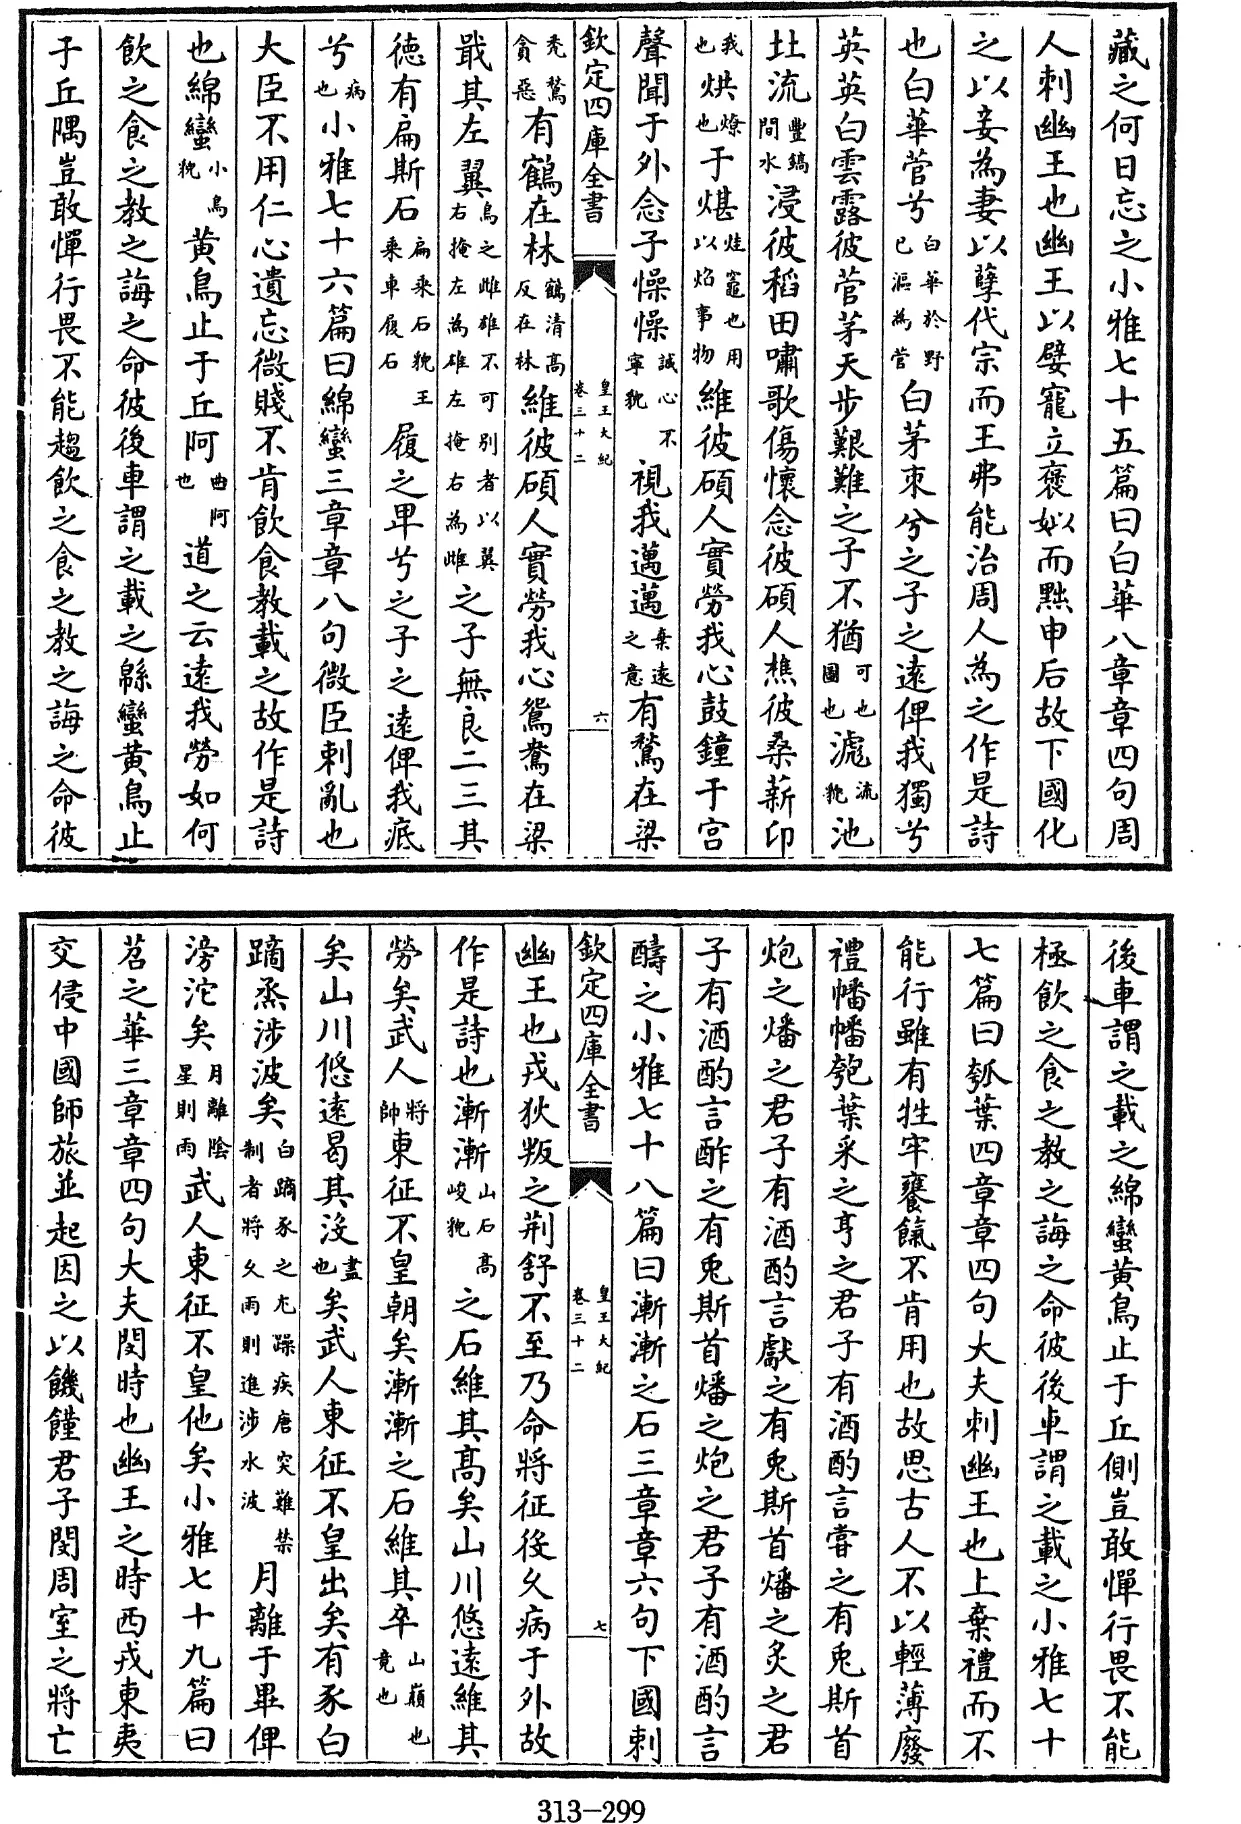 藏之何日忘之小雅七十五篇曰白華八章章四句周
人刺幽王也幽王以嬖寵立褒姒而黜申后故下國化
之以妾為妻以孽代宗而王弗能治周人為之作是詩
也白華菅兮白華於野已漚為菅白茅束兮之子之遠俾我獨兮
英英白雲露彼菅茅天步艱難之子不猶可也圖也滮流貌池
北流豐鎬間水浸彼稻田嘯歌傷懷念彼碩人樵彼桑薪卬
我也烘燎也于煁煁竈也用以焰事物維彼碩人實勞我心鼓鐘于宫
聲聞于外念子懆懆誠心不寧貌視我邁邁棄逺之意有鶖在梁
欽定四庫全書 皇王大紀卷三十二 六
禿鶖貪惡有鶴在林鶴清高反在林維彼碩人實勞我心鴛鴦在梁
戢其左翼鳥之雌雄不可别者以翼右掩左為雄左掩右為雌之子無良二三其
徳有扁斯石扁乘石貌王乘車履石履之卑兮之子之遠俾我疧
兮病也小雅七十六篇曰綿蠻三章章八句微臣刺亂也
大臣不用仁心遺忘微賤不肯飲食教載之故作是詩
也綿蠻小鳥貌黄鳥止于丘阿曲阿也道之云逺我勞如何
飲之食之教之誨之命彼後車謂之載之緜蠻黄鳥止
于丘隅豈敢憚行畏不能趨飲之食之教之誨之命彼
後車謂之載之綿蠻黄鳥止于丘側豈敢憚行畏不能
極飲之食之教之誨之命彼後車謂之載之小雅七十
七篇曰瓠葉四章章四句大夫刺幽王也上棄禮而不
能行雖有牲牢饔餼不肯用也故思古人不以輕薄廢
禮幡幡匏葉采之亨之君子有酒酌言嘗之有兎斯首
炮之燔之君子有酒酌言獻之有兎斯首燔之炙之君
子有酒酌言酢之有兎斯首燔之炮之君子有酒酌言
醻之小雅七十八篇曰漸漸之石三章章六句下國刺
欽定四庫全書 皇王大紀卷三十二 七
幽王也戎狄叛之荆舒不至乃命將征役久病于外故
作是詩也漸漸山石高峻貌之石維其髙矣山川悠遠維其
勞矣武人將帥東征不皇朝矣漸漸之石維其卒山巔也竟也
矣山川悠遠曷其沒盡也矣武人東征不皇出矣有豕白
蹢烝涉波矣白蹢豕之尤躁疾唐突難禁制者將久雨則進涉水波月離于畢俾
滂沱矣月離陰星則雨武人東征不皇他矣小雅七十九篇曰
苕之華三章章四句大夫閔時也幽王之時西戎東夷
交侵中國師旅並起因之以饑饉君子閔周室之將亡
313-299